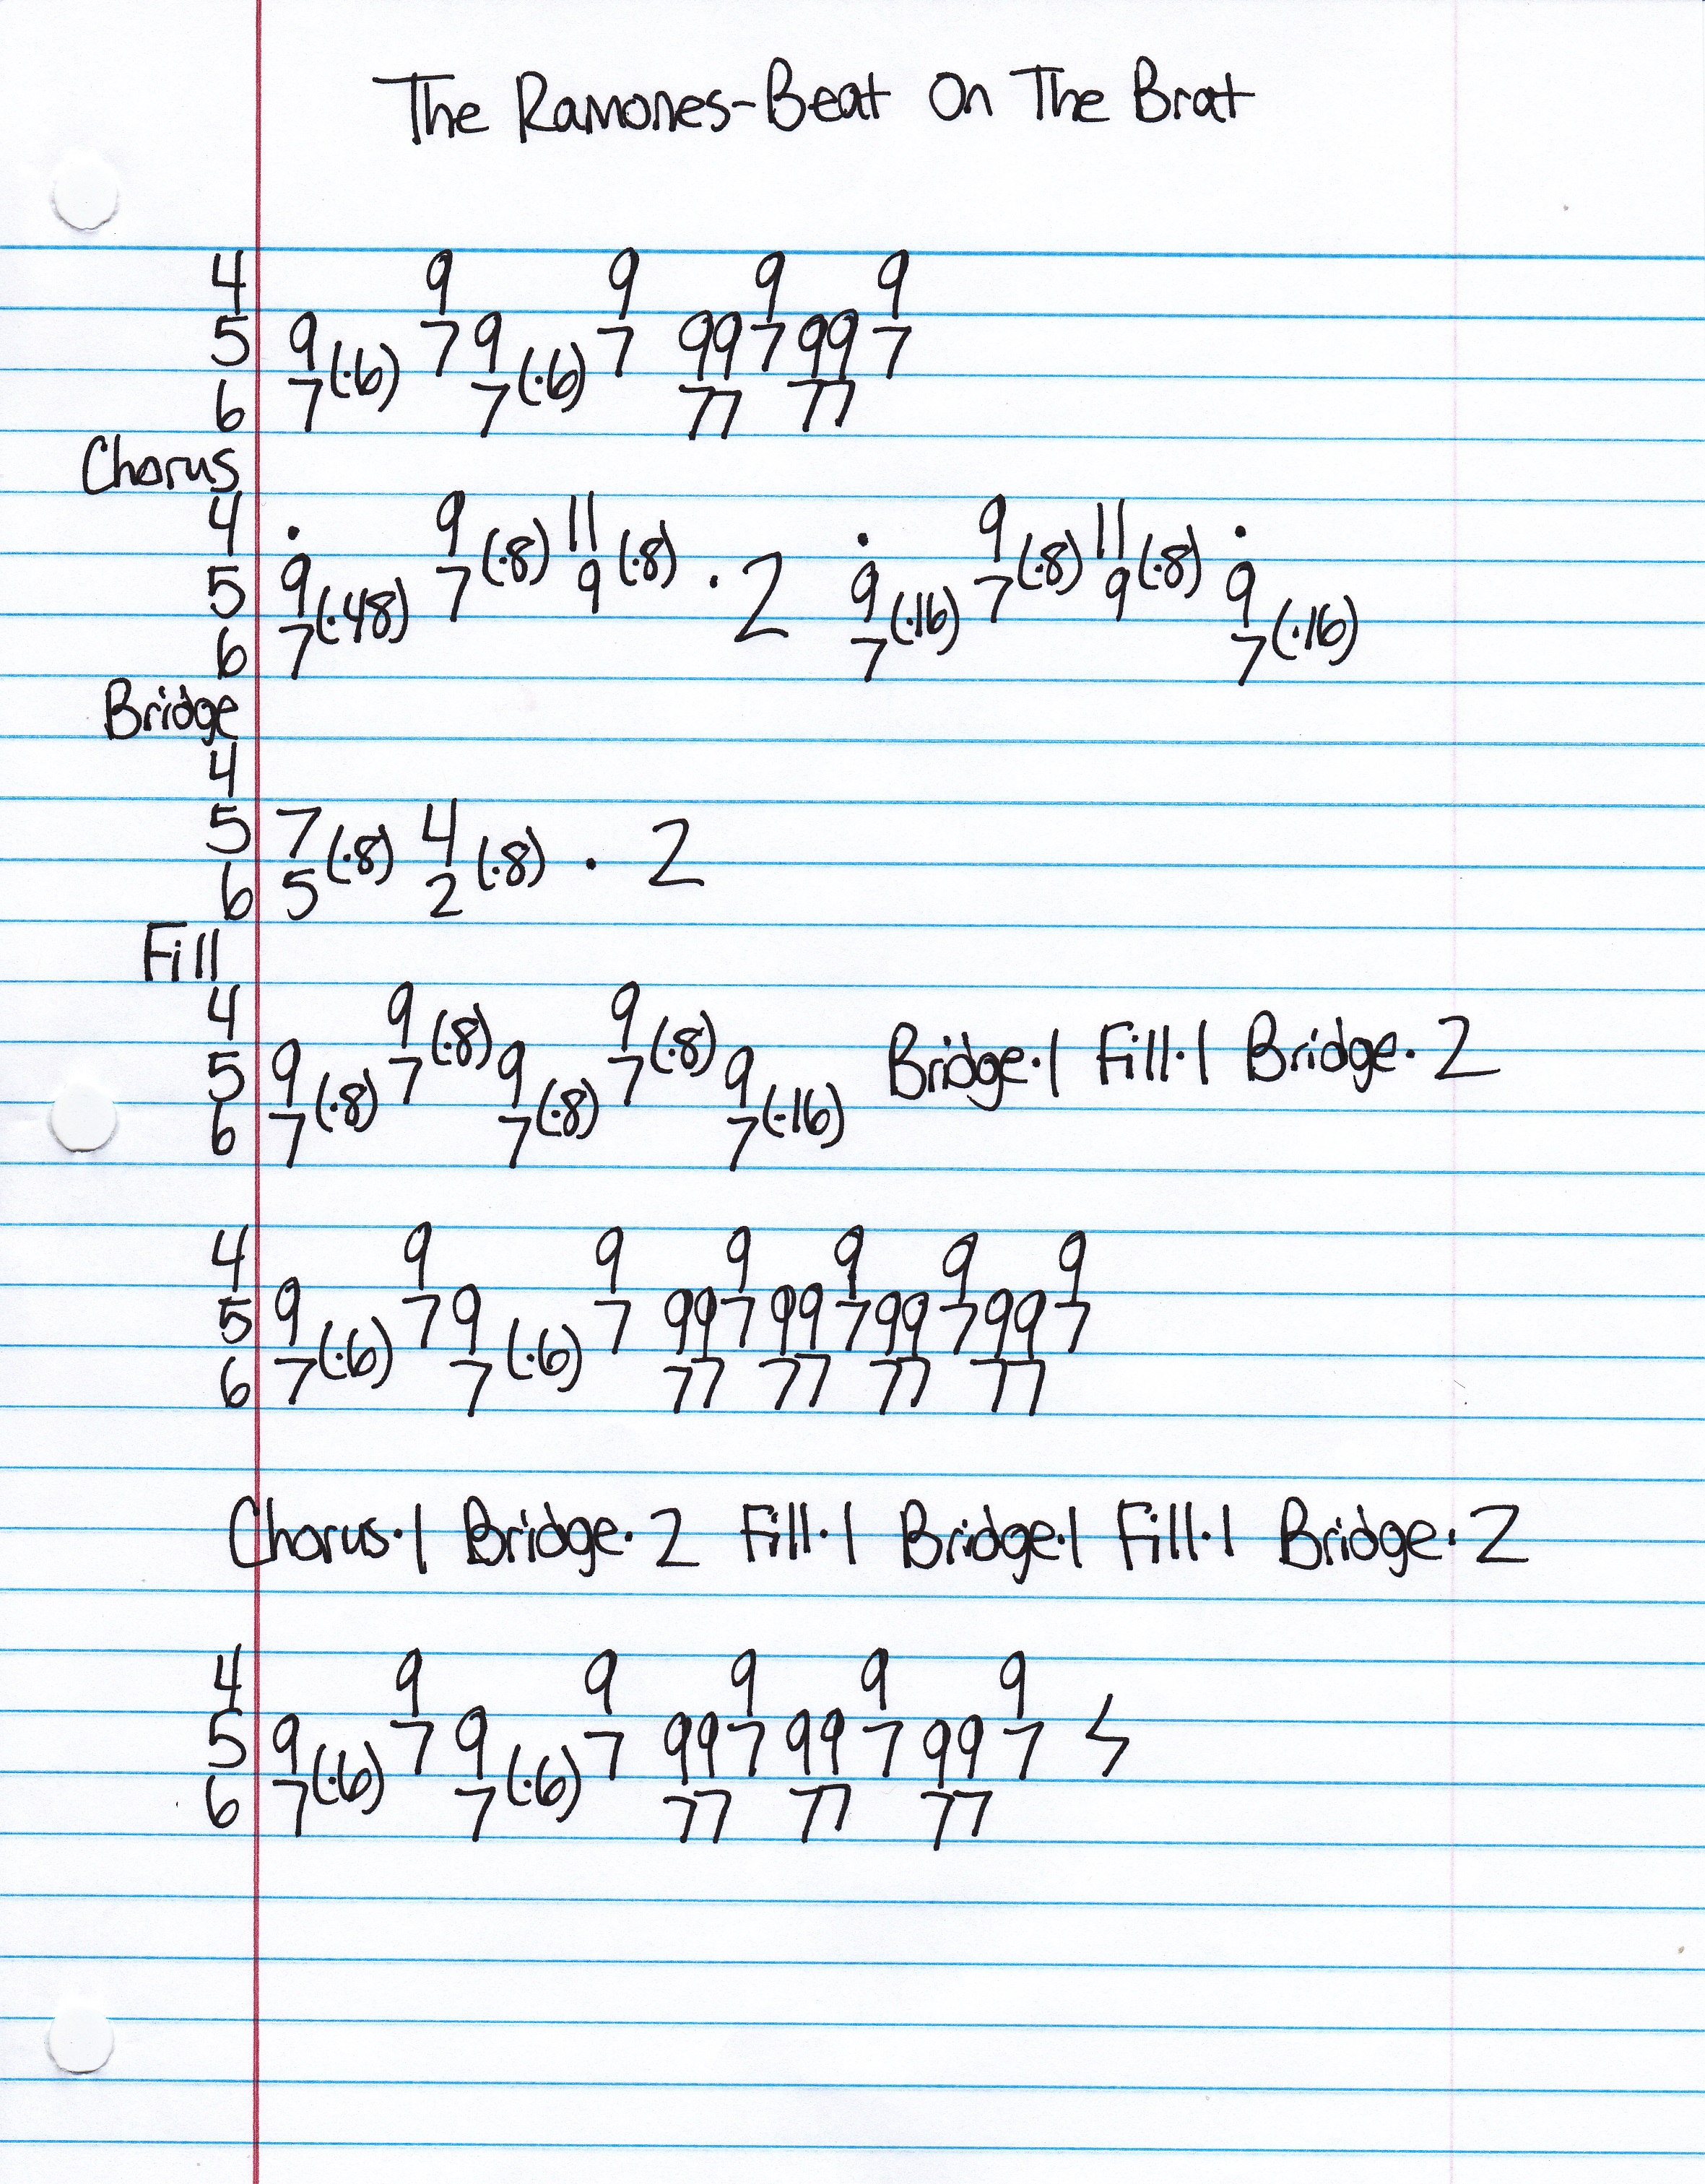 The Ramones-Beat On The Brat
4 9 9 9 9
5 9 (·6) 7 9 (·6) 7 99 7 99 7
6 7 7 77 77
Chorus
4 · 9 (·8) 11 (·8) · 9 (·8) 11 (·8) ·
5 9 (·48) 7 9 · 2 9 (·16) 7 9 9 (·16)
6 7 7 7
Bridge
4
5 7 (·8) 4 (·8) · 2
6 5 2
Fill
4 9 (·8) 9 (·8)
5 9 (·8) 7 9 (·8) 7 9 (·16) Bridge·1 Fill·1 Bridge·2
6 7 7 7
4 9 9 9 9 9 9
5 9 (·6) 7 9 (·6) 7 99 7 99 7 99 7 99 7
6 7 7 77 77 77 77
Chorus·1 Bridge·2 Fill·1 Bridge·1 Fill·1 Bridge·2
4 9 9 9 9 9
5 9 (·6) 7 9 (·6) 7 99 7 99 7 99 7
6 7 7 77 77 77